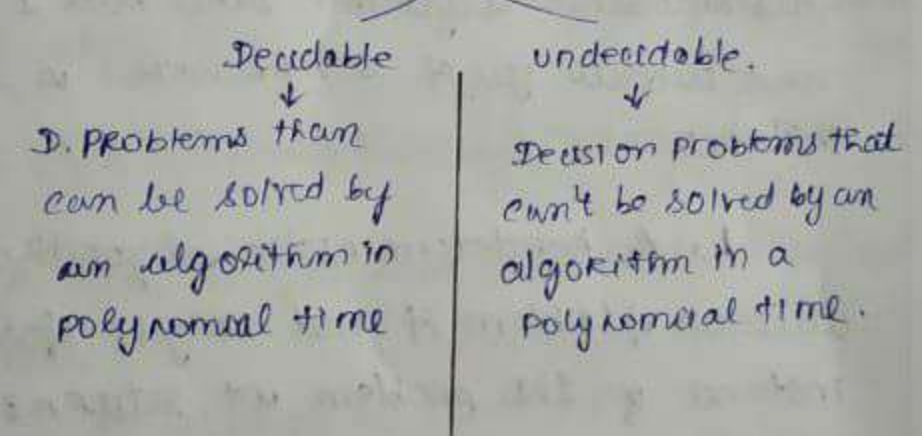 Decidable
D. problems than
can be solved by
an algorithm in
polynomial time
undecidable.
Decision problems that
can't be solved by an
algorithm in a
polynomial time.